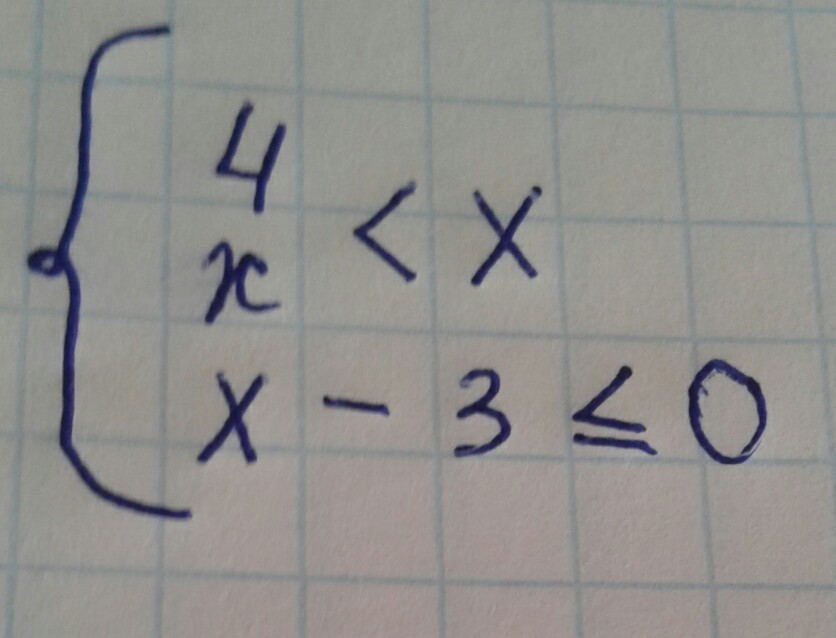 4
x < x
x - 3 ≤ 0